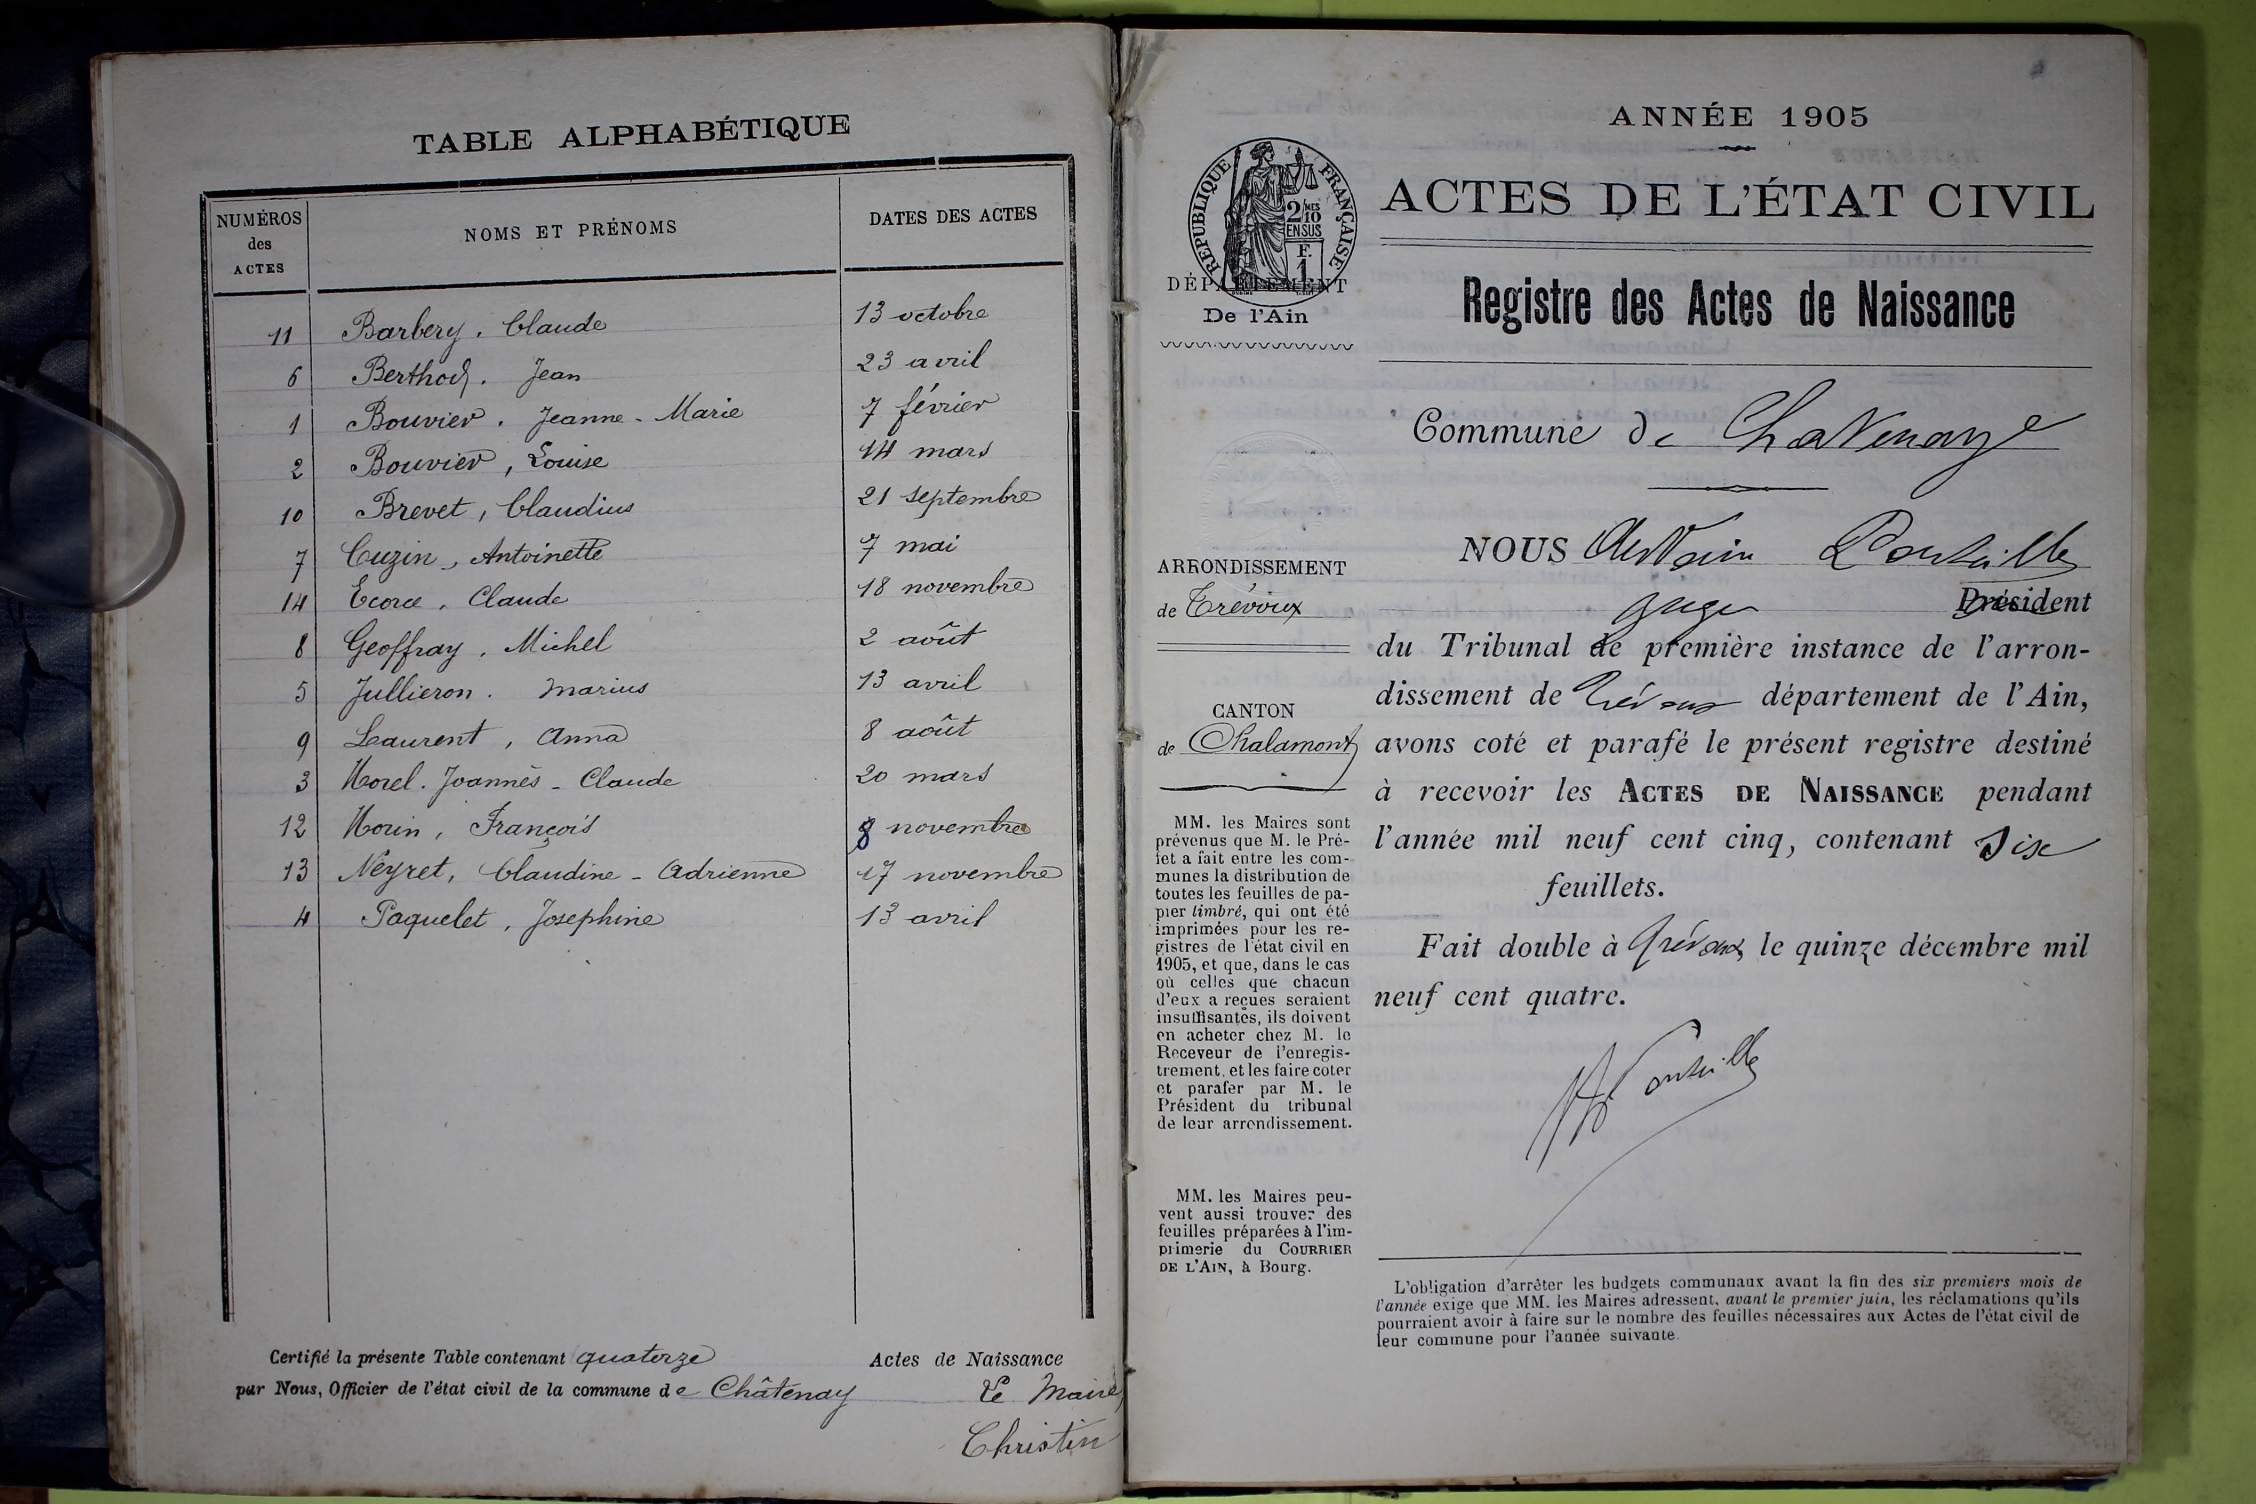 TABLE ALPHABÉTIQUE
NUMÉROS des ACTES NOMS ET PRÉNOMS DATES DES ACTES
11 Barbery, Claude 13 octobre
6 Berthod. Jean 23 avril
1 Bouvier. Jeanne-Marie 7 février
2 Bouvier, Louise 14 mars
10 Brevet, Claudius 21 septembre
7 Cuzin, Antoinette 7 mai
14 Ecorce, Claude 18 novembre
8 Geoffray, Michel 2 août
5 Jullieron. Marius 13 avril
9 Laurent, Anna 8 août
3 Morel. Joannès-Claude 20 mars
12 Morin, François 8 novembre
13 Neyret, Claudine-Adrienne 17 novembre
4 Paquelet, Josephine 13 avril
Certifié la présente Table contenant quatorze Actes de Naissance
par Nous, Officier de l'état civil de la commune de Châtenay Le Maire,
Christin
ANNÉE 1905
ACTES DE L'ÉTAT CIVIL
RÉPUBLIQUE FRANÇAISE
2/10 MES
EN SUS
1 F.
DÉPARTEMENT
De l'Ain
Registre des Actes de Naissance
Commune de Chatenay
ARRONDISSEMENT
de Trévoux
CANTON
de Chalamont
MM. les Maires sont
prévenus que M. le Pré-
fet a fait entre les com-
munes la distribution de
toutes les feuilles de pa-
pier timbré, qui ont été
imprimées pour les re-
gistres de l'état civil en
1905, et que, dans le cas
où celles que chacun
d'eux a reçues seraient
insuffisantes, ils doivent
en acheter chez M. le
Receveur de l'enregis-
trement, et les faire coter
et parafer par M. le
Président du tribunal
de leur arrondissement.
MM. les Maires peu-
vent aussi trouver des
feuilles préparées à l'im-
primerie du COURRIER
DE L'AIN, à Bourg.
NOUS
juge Président
du Tribunal de première instance de l'arron-
dissement de Trévoux département de l'Ain,
avons coté et parafé le présent registre destiné
à recevoir les ACTES DE NAISSANCE pendant
l'année mil neuf cent cinq, contenant six
feuillets.
Fait double à Trévoux, le quinze décembre mil
neuf cent quatre.
L'obligation d'arrêter les budgets communaux avant la fin des six premiers mois de
l'année exige que MM. les Maires adressent, avant le premier juin, les réclamations qu'ils
pourraient avoir à faire sur le nombre des feuilles nécessaires aux Actes de l'état civil de
leur commune pour l'année suivante.